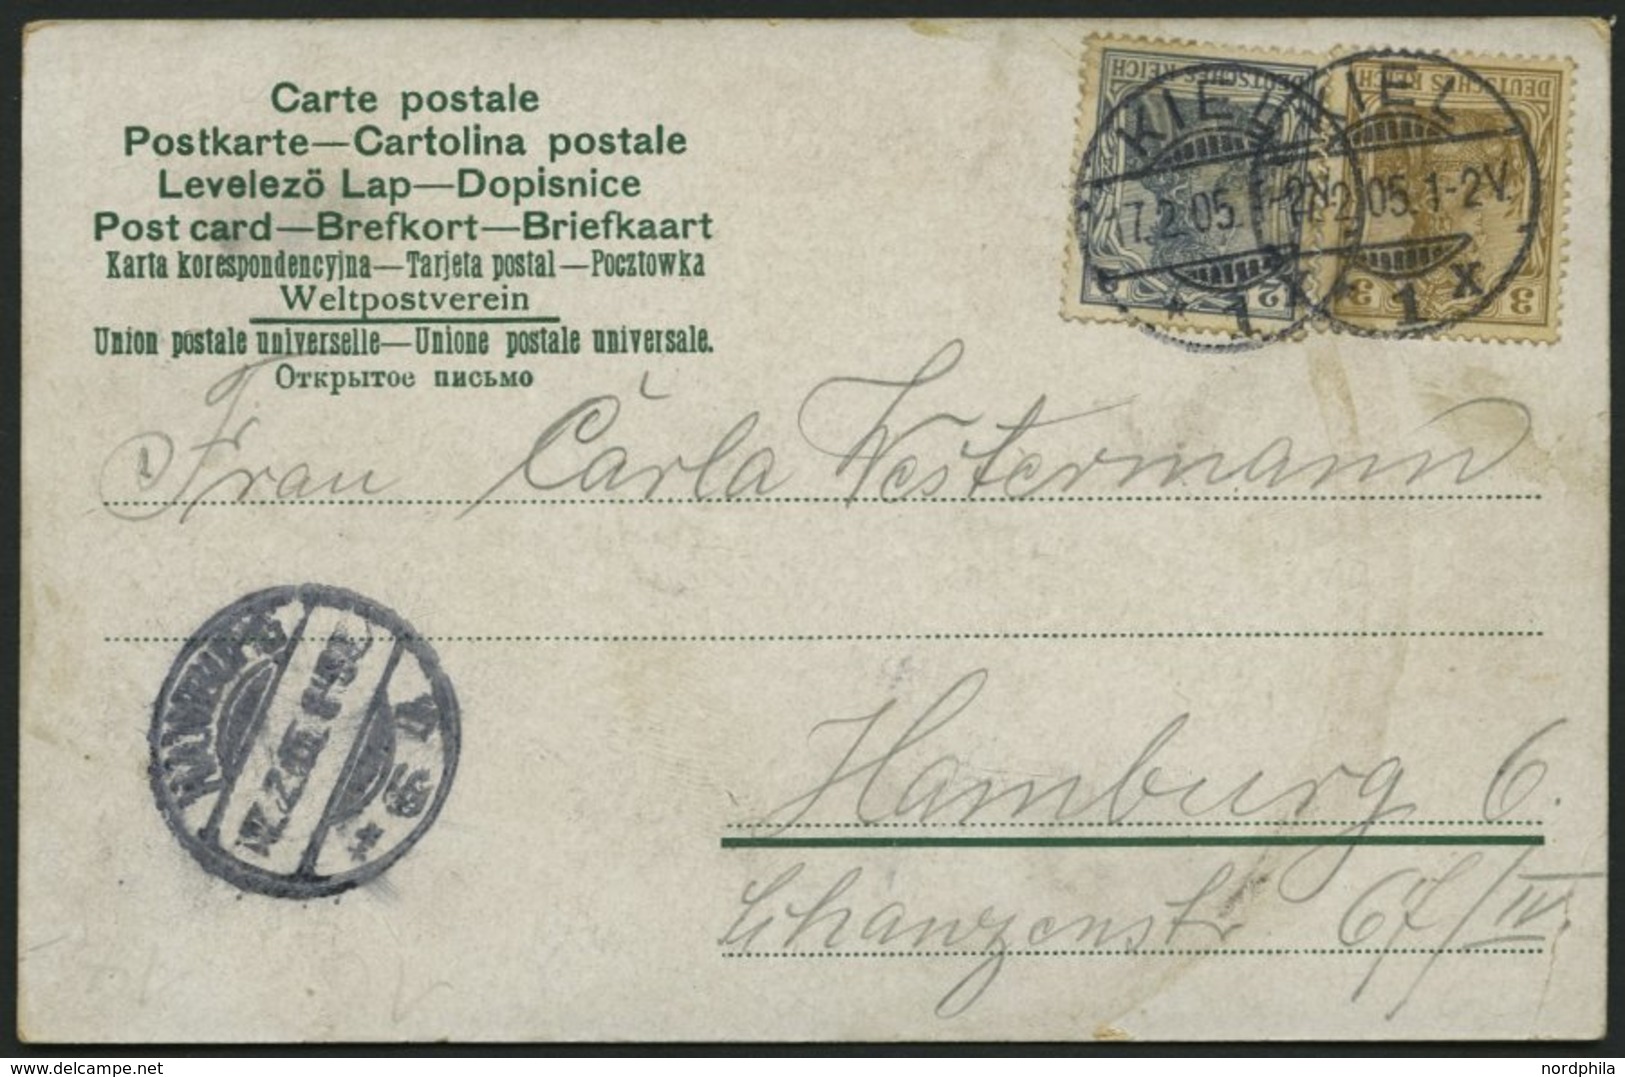 Carte postale
Postkarte—Cartolina postale
Levelezö Lap—Dopisnice
Post card—Brefkort—Briefkaart
Karta korespondencyjna—Tarjeta postal—Pocztowka
Weltpostverein
Union postale universelle—Unione postale universale.
Открытое письмо
DEUTSCHES REICH
2
DEUTSCHES REICH
3 3
KIEL
17.2.05.1-2V.
* 1 X
KIEL
17.2.05.1-2V.
* 1 X
Frau Carla Westermann
HAMBURG
17.2.05
Hamburg 6.
Schanzenstr 67/IV.
delcampe.net
nordphila